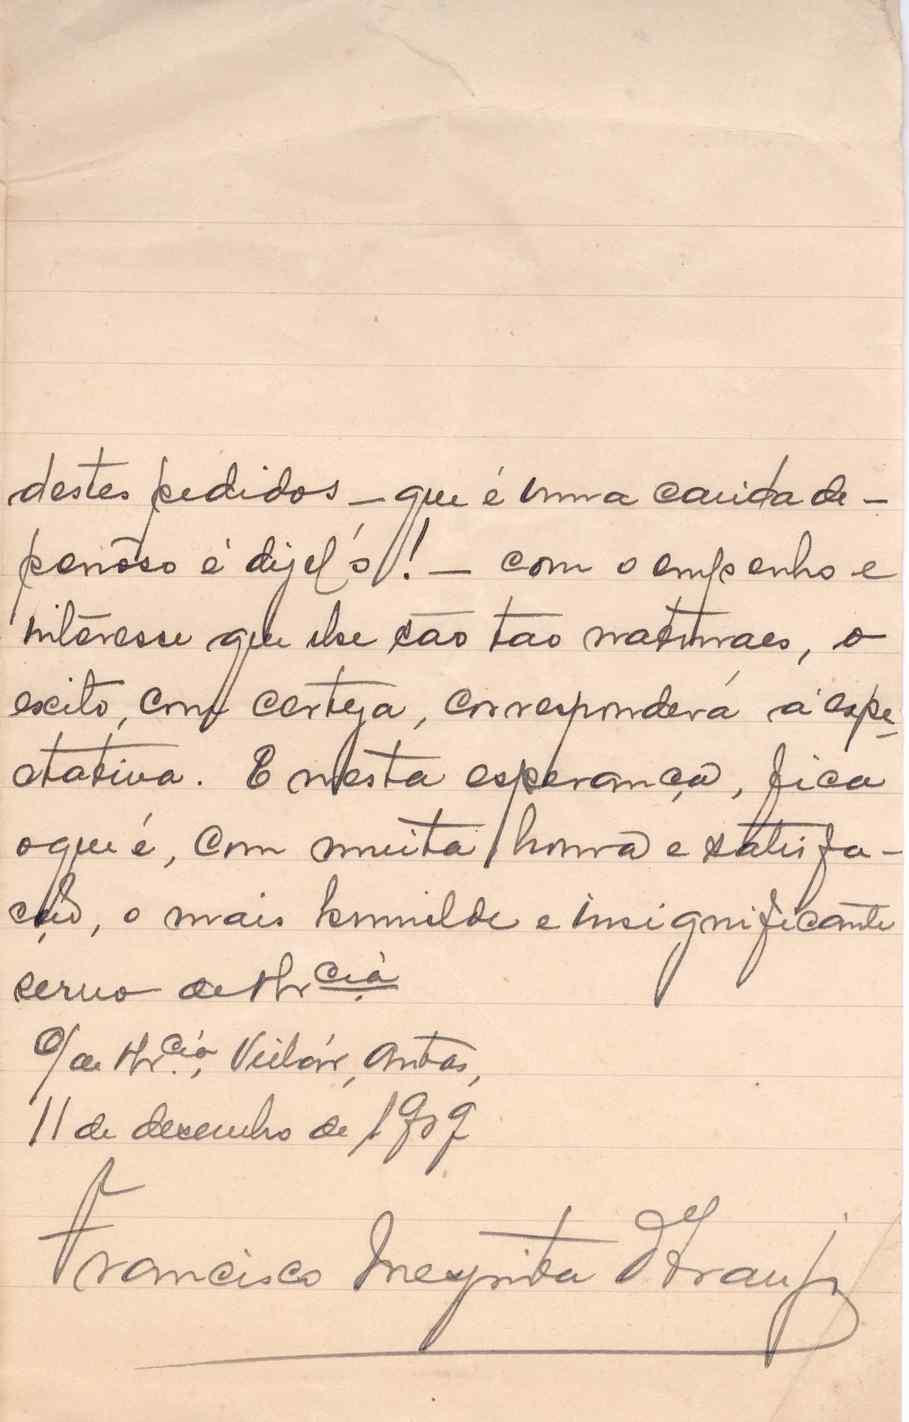 destes pedidos – que é uma caridade –
penôso é dizel'o! – com o empenho e
intêresse que lhe são tão naturaes, o
exito, com certeza, corresponderá á espe-
ctativa. E nesta esperança, fica
o que é, com muita honra e satisfa-
ção, o mais humilde e insignificante
servo de V. Ex.cia
C/ de V. Ex.cia, Vilar, Antas,
11 de dezembro de 1919
Francisco Mesquita d'Araujo